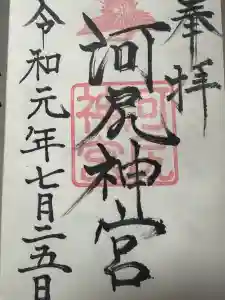 奉拝
河尻神宮
令和元年七月二五日
河尻神宮